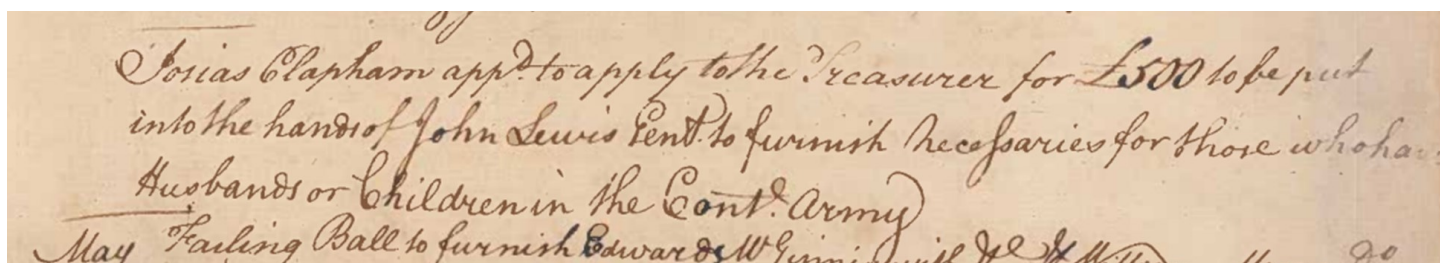 Josias Clapham appd. to apply to the Treasurer for £500 to be put
into the hands of John Lewis Gent. to furnish Necessaries for those who
Husbands or Children in the Contl. Army
May Failing Ball to furnish Edward McGinnis with